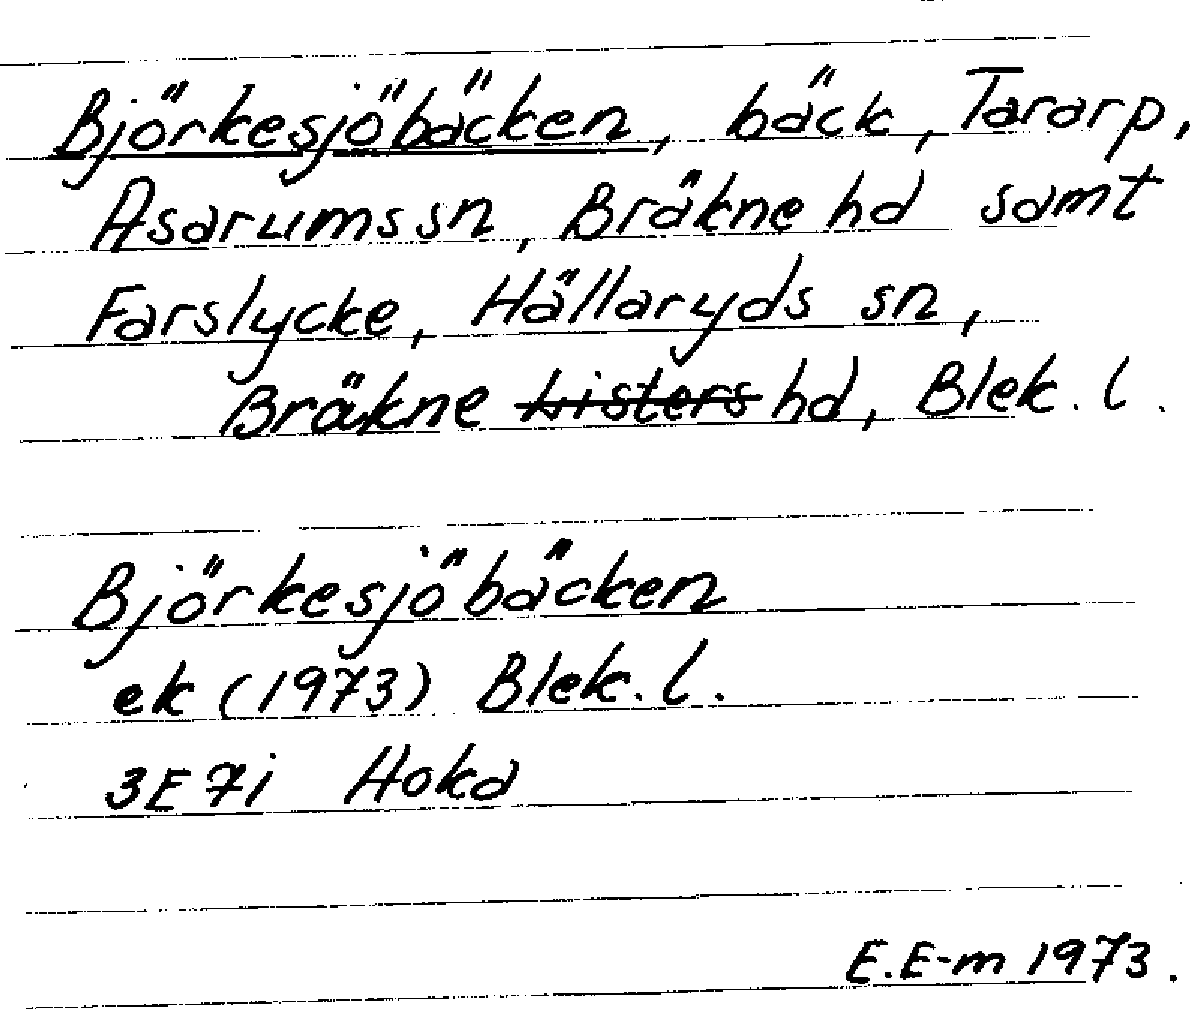 Björkesjöbäcken, bäck, Tararp,
Asarums sn, Bräkne hd samt
Farslycke, Hällaryds sn,
Bräkne Listers hd, Blek. l.
Björkesjöbäcken
ek (1973) Blek. l.
3E 7i Hoka
E.E-m 1973.